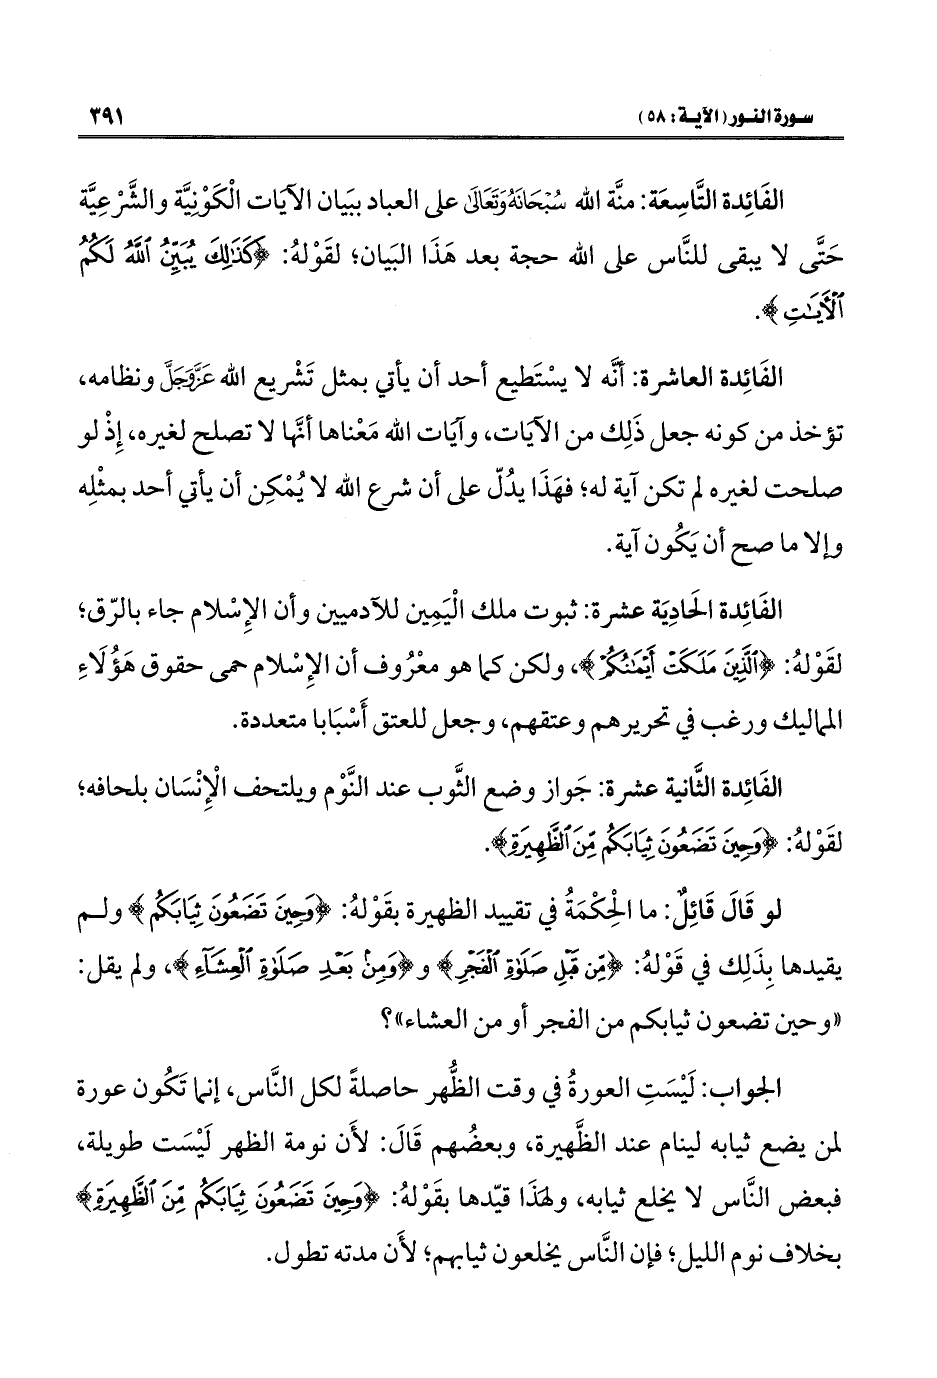 سورة النور (الآية: ٥٨) ٣٩١
الفَائِدة التَّاسِعَة: منَّة الله سُبْحَانَهُ وَتَعَالَى على العباد ببيَان الآيَات الْكَوْنِيَّة والشَّرْعِيَّة
حَتَّى لا يبقى للنَّاس على الله حجة بعد هَذَا البَيان؛ لقَوْلهُ: ﴿كَذَٰلِكَ يُبَيِّنُ ٱللَّهُ لَكُمُ
ٱلْأَيَٰتِ﴾.
الفَائِدة العاشرة: أنَّه لا يسْتَطيع أحد أن يأتي بمثل تَشْريع الله عَزَّوَجَلَّ ونظامه،
تؤخذ من كونه جعل ذَلِك من الآيَات، وآيَات الله مَعْناها أنَّها لا تصلح لغيره، إذْ لو
صلحت لغيره لم تكن آية له؛ فهَذَا يدُلّ على أن شرع الله لا يُمْكِن أن يأتي أحد بمثْلِه
وإلا ما صح أن يَكُون آية.
الفَائِدة الحَادِيَة عشرة: ثبوت ملك الْيَمِين للآدميين وأن الإِسْلام جاء بالرّق؛
لقَوْلهُ: ﴿ٱلَّذِينَ مَلَكَتْ أَيْمَٰنُكُمْ﴾، ولكن كما هو معْرُوف أن الإِسْلام حمى حقوق هَؤُلَاءِ
المماليك ورغب في تحريرهم وعتقهم، وجعل للعتق أَسْبَابا متعددة.
الفَائِدة الثَّانية عشرة: جَواز وضع الثَّوب عند النَّوْم ويلتحف الْإِنْسَان بلحافه؛
لقَوْلهُ: ﴿وَحِينَ تَضَعُونَ ثِيَابَكُم مِّنَ ٱلظَّهِيرَةِ﴾.
لو قَالَ قَائِلٌ: ما الحِكْمَةُ في تقييد الظهيرة بقَوْلهُ: ﴿وَحِينَ تَضَعُونَ ثِيَابَكُم﴾ ولـم
يقيدها بِذَلِك في قَوْلهُ: ﴿مِّن قَبْلِ صَلَوٰةِ ٱلْفَجْرِ﴾ و﴿وَمِنۢ بَعْدِ صَلَوٰةِ ٱلْعِشَآءِ﴾، ولم يقل:
«وحين تضعون ثيابكم من الفجر أو من العشاء»؟
الجواب: لَيْسَتِ العورةُ في وقت الظُّهر حاصلةً لكل النَّاس، إنما تَكُون عورة
لمن يضع ثيابه لينام عند الظَّهيرة، وبعضُهم قَالَ: لأَن نومة الظهر لَيْسَت طويلة،
فبعض النَّاس لا يخلع ثيابه، ولهَذا قيّدها بقَوْلهُ: ﴿وَحِينَ تَضَعُونَ ثِيَابَكُم مِّنَ ٱلظَّهِيرَةِ﴾
بخلاف نوم الليل؛ فإن النَّاس يخلعون ثيابهم؛ لأَن مدته تطول.